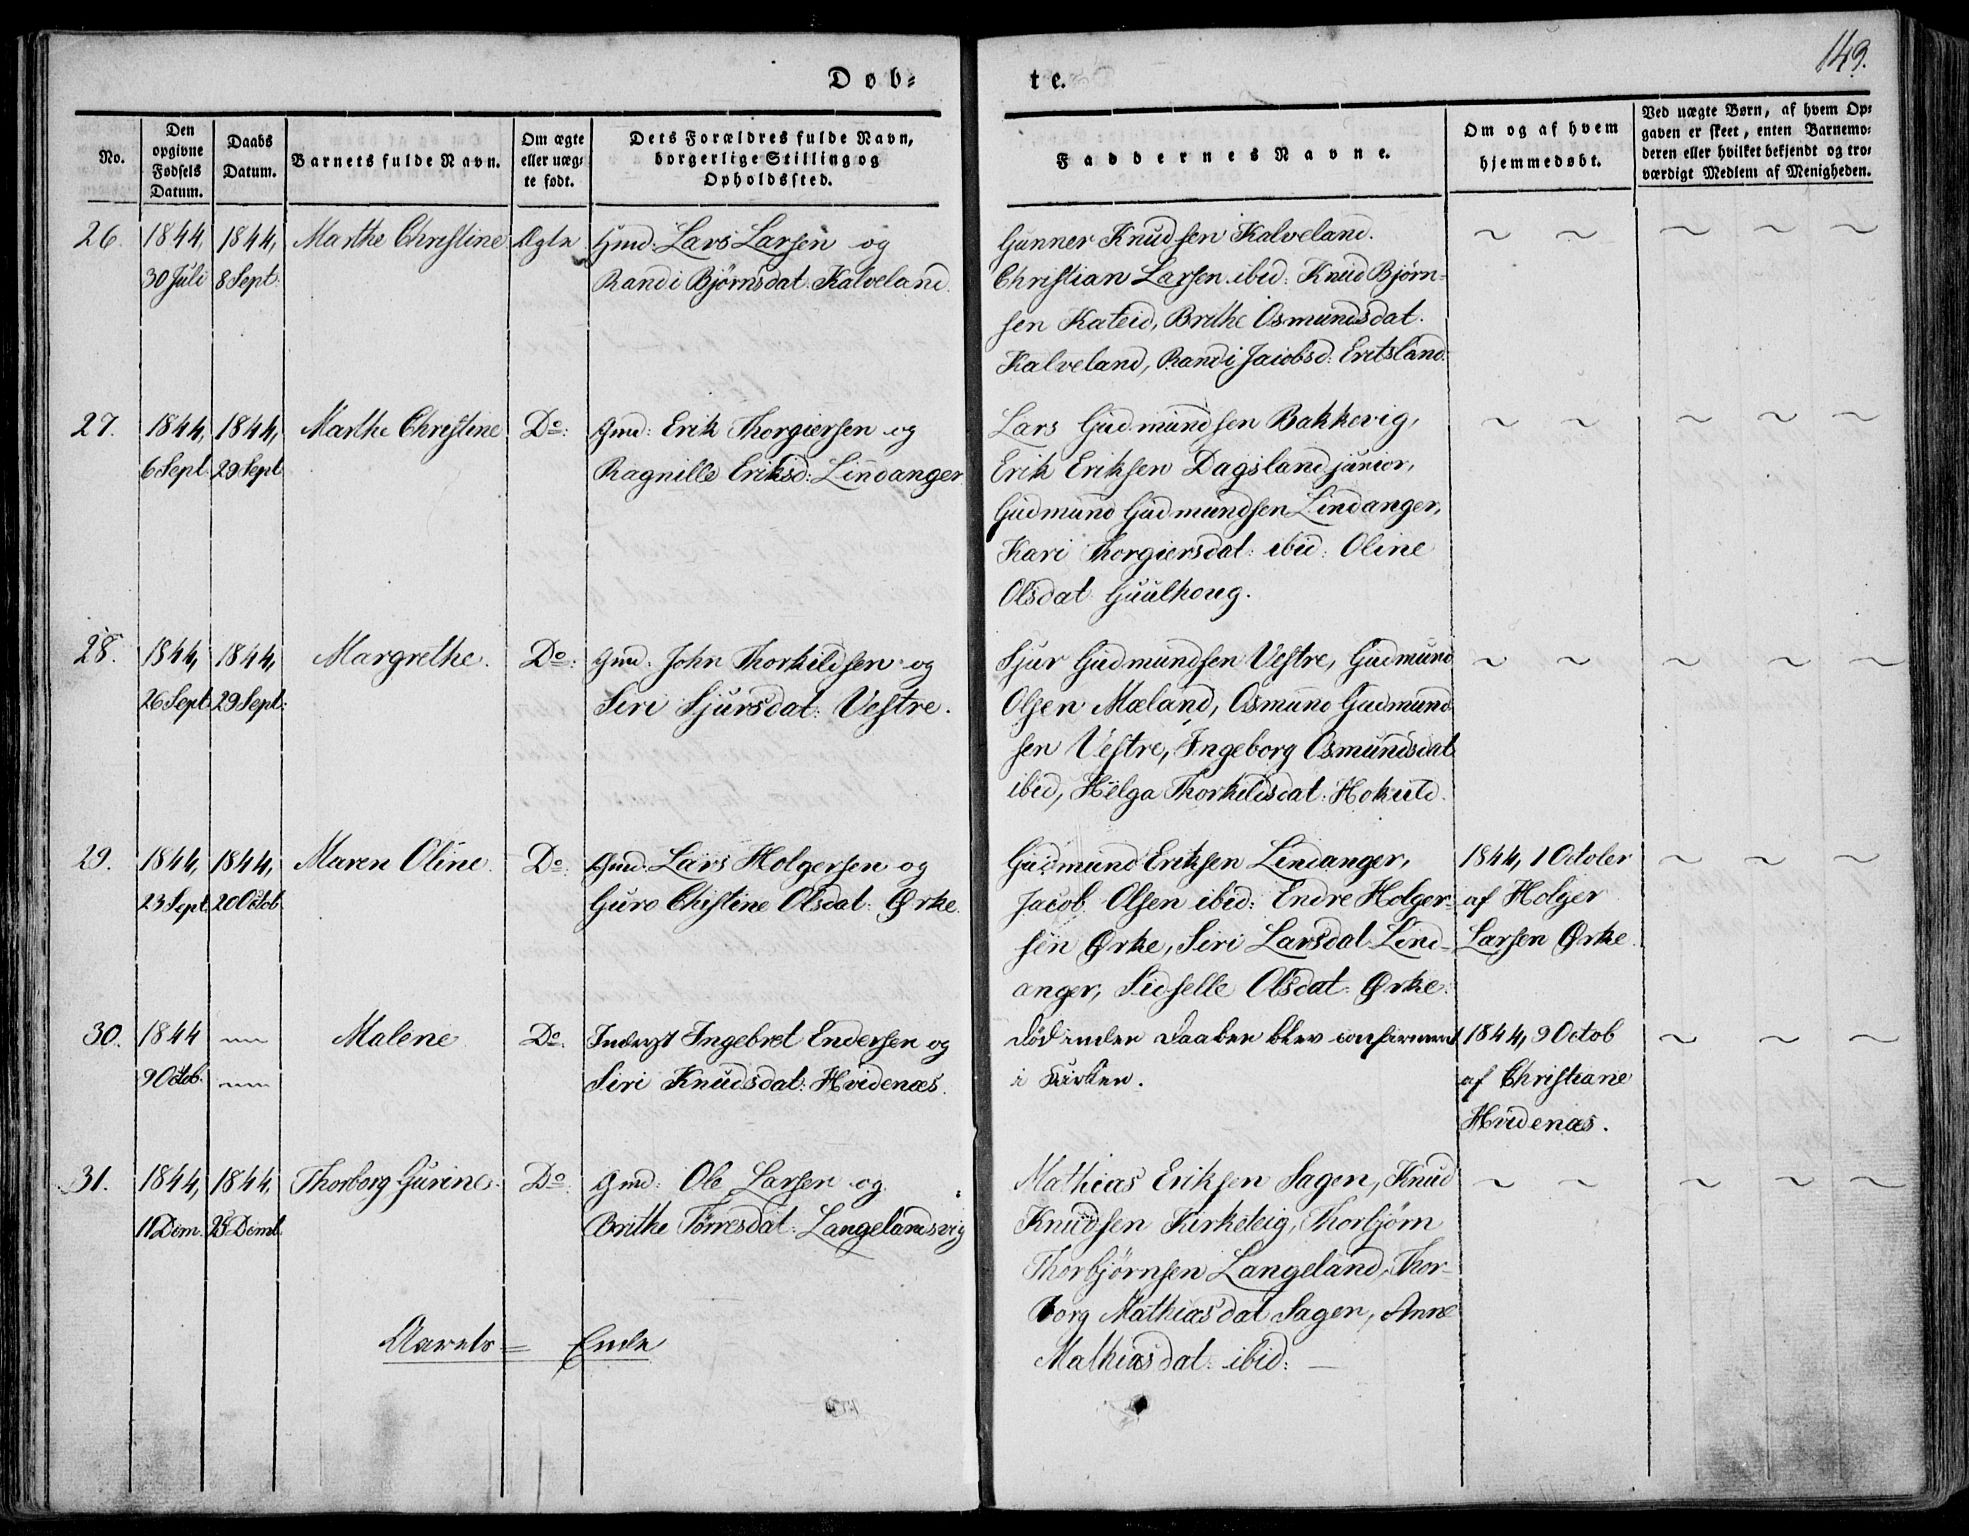 149.
Døb-
te.
No.
Den opgivne Fødsels Datum.
Daabs Datum.
Barnets fulde Navn.
Om ægte eller uæg-te født.
Dets Forældres fulde Navn, borgerlige Stilling og Opholdssted.
Faddernes Navne.
Om og af hvem hjemmedøbt.
Ved uægte Børn, af hvem Op-gaven er skeet, enten Barnemo-deren eller hvilket bekjendt og tro-værdigt Medlem af Menigheden.
26. 1844, 1844, Marthe Christine Ægte Gmd: Lars Larsen og
30 Juli 8 Sept: Randi Bjørnsdat: Kalveland.
Gunner Knudsen Kalveland.
Christian Larsen ibid: Knud Bjørn-
sen Kateid, Brithe Osmundsdat.
Kalveland, Randi Jacobsd: Eritsland.
~ ~ ~ ~ ~
27. 1844, 1844, Marthe Christine Do: Gmd: Erik Thorgiersen og
6 Sept. 29 Sept Ragnille Eriksd: Lindanger
Lars Gudmundsen Bakkevig,
Erik Eriksen Dagsland junior,
Gudmund Gudmundsen Lindanger,
Kari Thorgiersdat: ibid: Oline
Olsdat Guulhoug.
~ ~ ~ ~ ~
28. 1844, 1844, Margrethe. Do: Gmd. John Thorkildsen og
26 Sept. 29 Sept: Siri Sjursdat: Vestre.
Sjur Gudmundsen Vestre, Gudmund
Olsen Mæland, Osmund Gudmund
sen Vestre, Ingeborg Osmundsdat
ibid, Helga Thorkildsdat: Hokuld.
~ ~ ~ ~ ~
29. 1844, 1844, Maren Oline. Do: Gmd. Lars Holgersen og
23 Sept 20 Octob Guro Christine Olsdat: Ørke.
Gudmund Eriksen Lindanger,
Jacob Olsen ibid: Endre Holger-
sen Ørke, Siri Larsdat Lind-
anger, Sidselle Olsdat: Ørke.
1844, 1 October
af Holger
Larsen Ørke.
~ ~ ~
30. 1844 ~ Malene Do. Inderst Ingebret Endersen og
9 Octob. ~ Siri Knudsdat: Hvidenæs.
død inden Daaben blev confirmeret
i Kirken.
1844, 9 Octob
af Christiane
Hvidenæs.
~ ~ ~
31. 1844, 1844, Thorborg Gurine. Do. Gmd: Ole Larsen og
11 Dcm. 25 Decmb Brithe Tørresdat: Langelandsvig
Mathias Eriksen Sagen, Knud
Knudsen Kirketeig, Thorbjørn
Thorbjørnsen Langeland, Thor-
borg Mathiasdat Sagen, Anne
Mathiasdat: ibid: —
~ ~ ~ ~ ~
Aarets = Ende